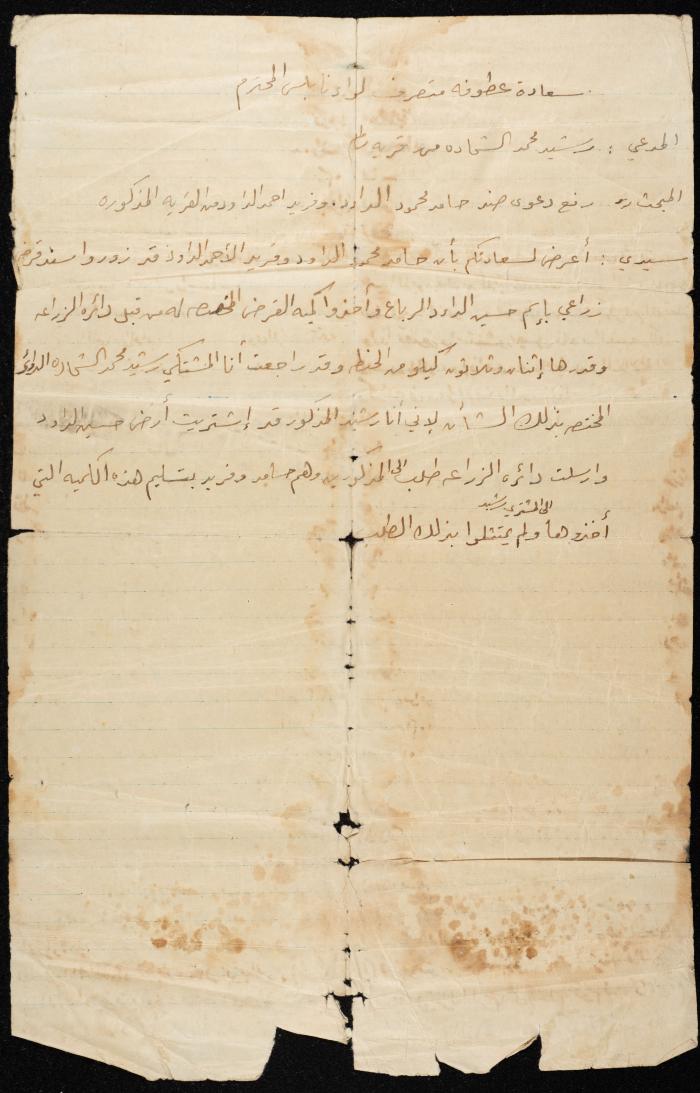 سعادة عطوفة متصرف لواء نابلس المحترم
المدعي : رشيد محمد الشحاده من قريه
رفع دعوى ضد حامد محمود الداود. وفريد احمد الداود من القريه المذكوره
سيدي : أعرض لسعادتكم بأن حامد محمود الداود وفريد الأحمد الداود قد زوروا سند قرض
زراعي بإسم حسين الداود الرباع وأخذوا كمية القرض المخصصه له من قبل دائرة الزراعه
وقدرها إثنان وثلاثون كيلو من الحنطه وقد راجعت أنا المشتكي رشيد محمد الشحاده الدوائر
المختصه بذلك الشأن لإني أنا رشيد المذكور قد إشتريت أرض حسين الداود
وارسلت دائرة الزراعه طلب الى المذكورين وهم حامد وفريد بتسليم هذه الكميه التي
الى المشتري رشيد
أخذوها ولم يمتثلوا بذلك الطلب